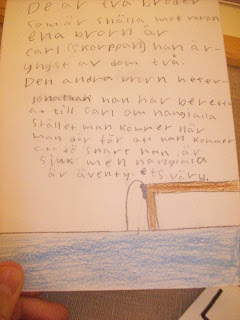 De är två bröder
som är snälla mot varan
ena brorn är
carl (skorppan) han är-
yngst av dom två.
Den andra brorn heter
Jonathan han har berett
at till carl om nangiala
stället man kommer när
man dör för att han kommer
att dö snart han är
sjuk men nangiala
är äventy